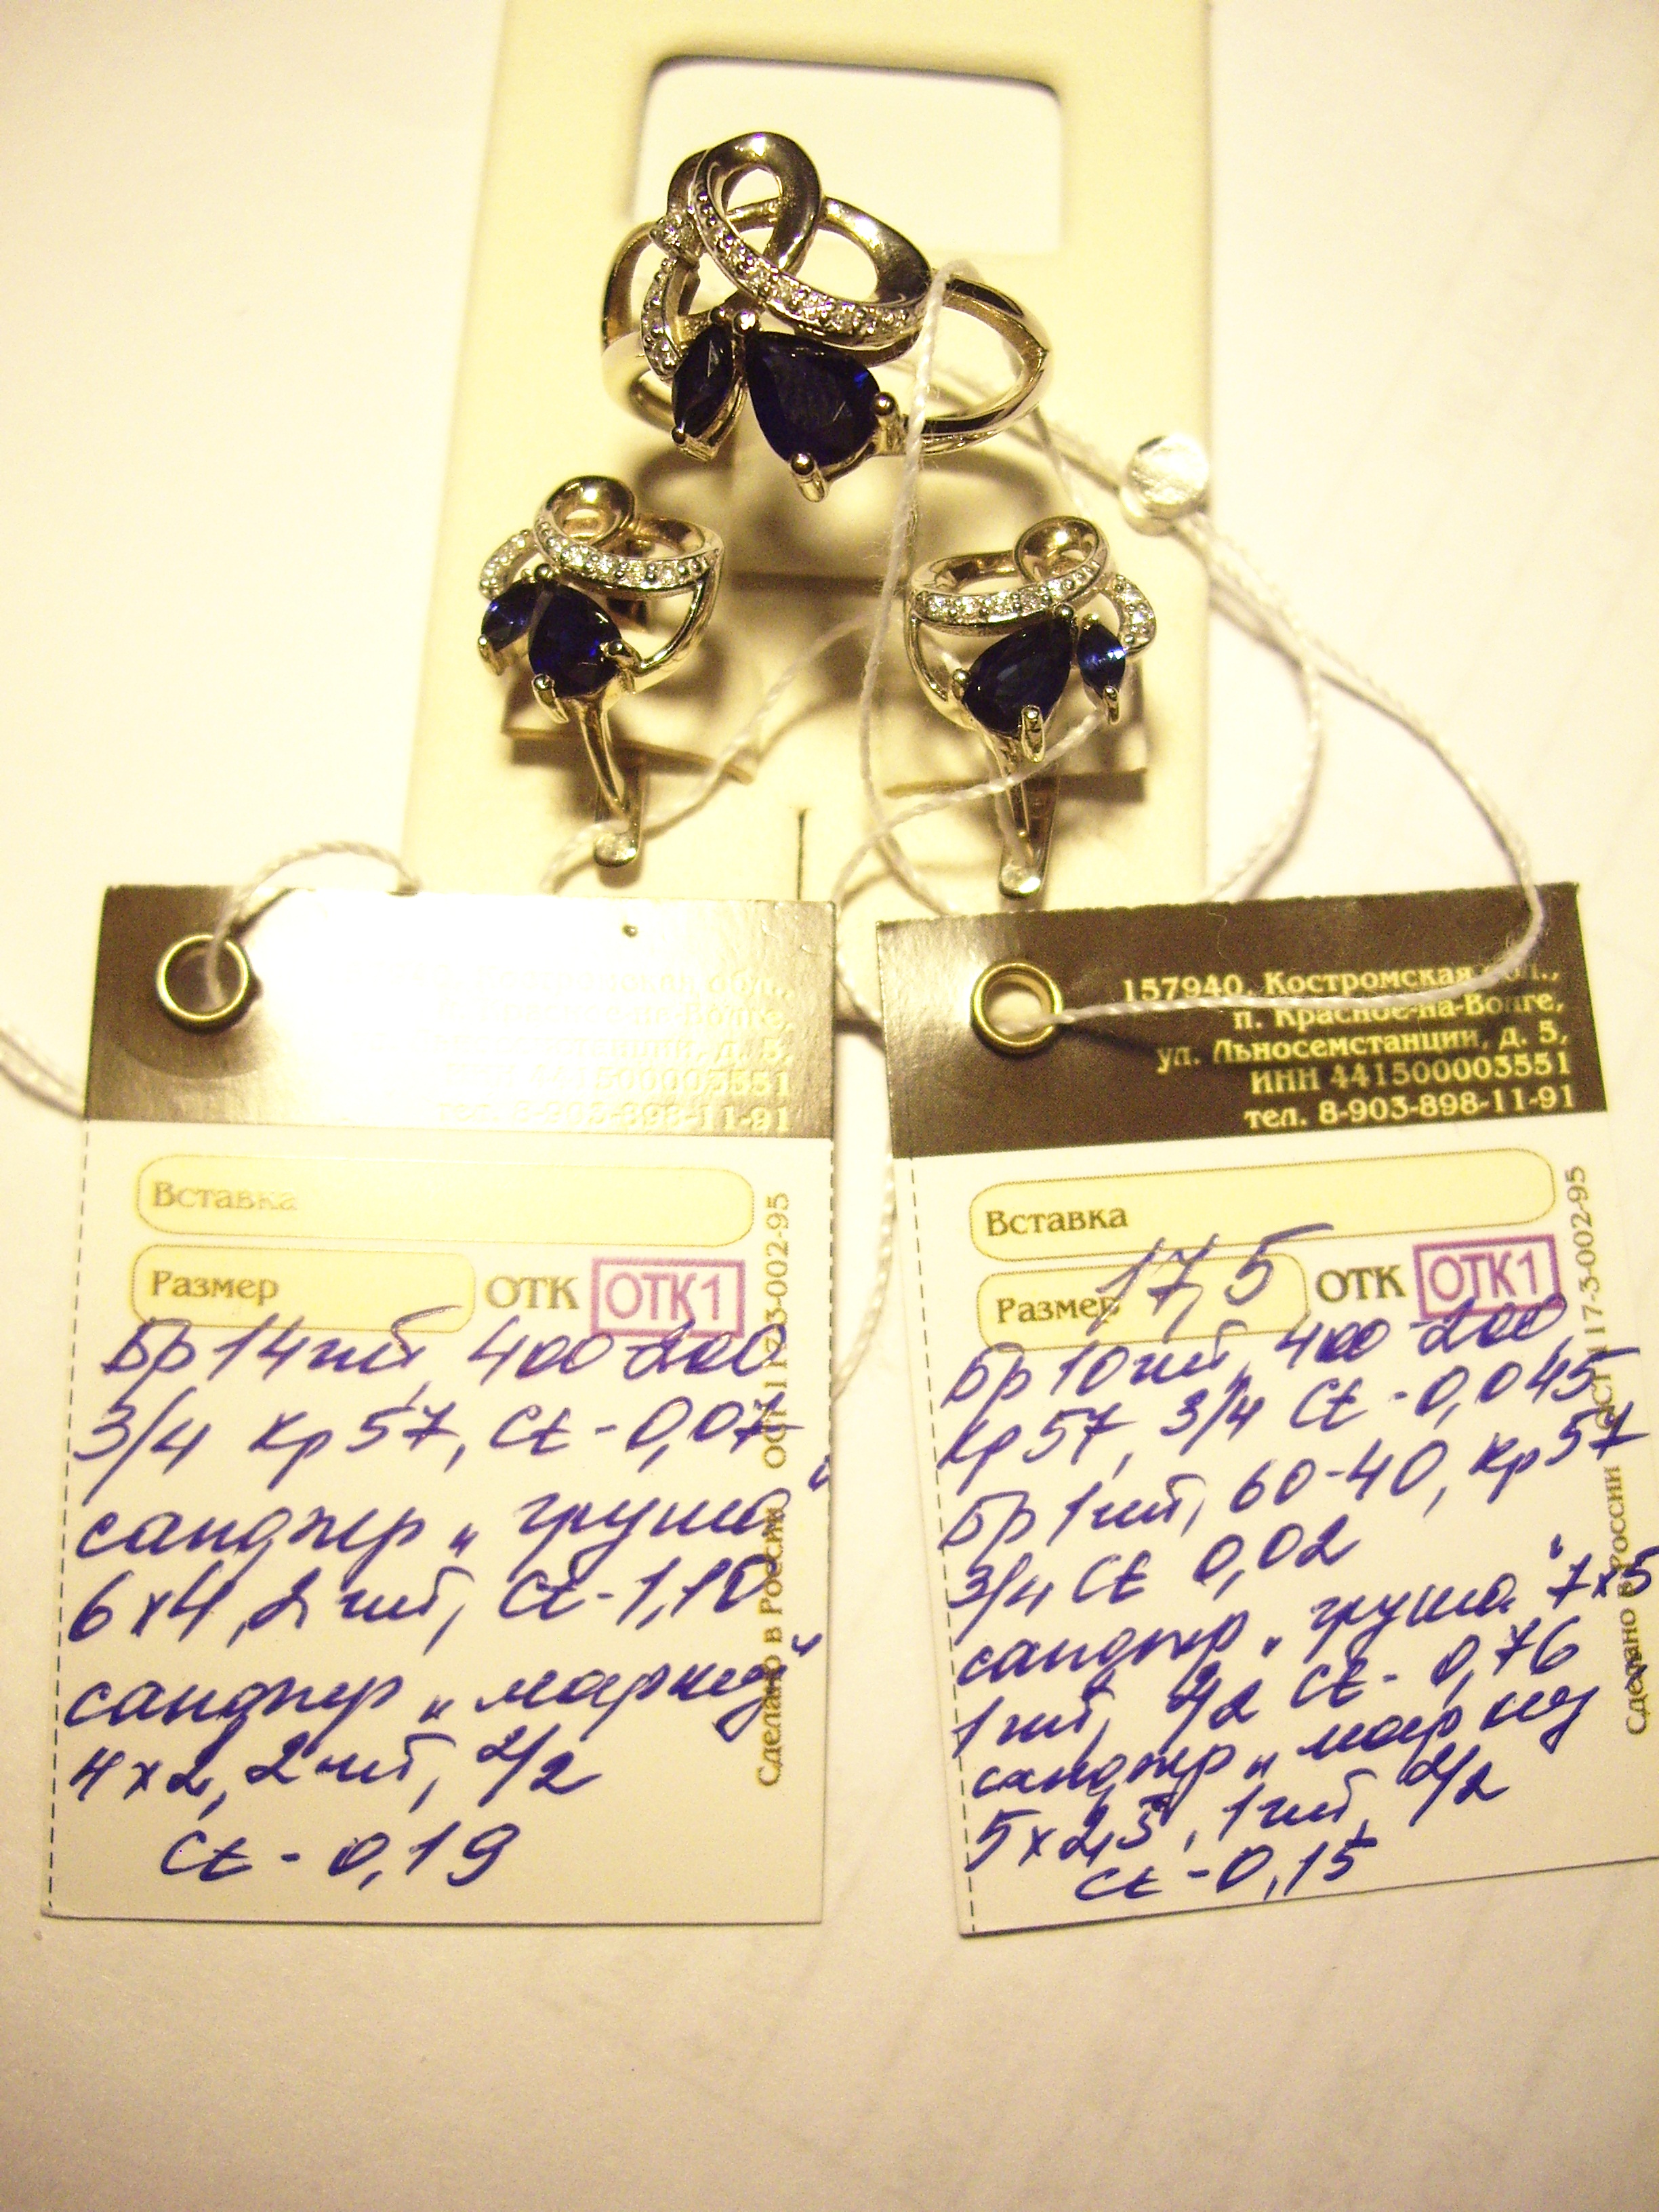 Костромская обл.,
п. Красное-на-Волге,
д. 5,
ИНН 441500003551
тел. 8-903-898-11-91
Вставка
Размер
ОТК ОТК1
Бр 14 шт, 400-200
3/4 Кр 57, Ct - 0,07
сапфир „груша“
6х4, 2 шт, Ct - 1,10
сапфир „маркиз“
4х2, 2 шт, 2/2
Ct - 0,19
Сделано в России ОСТ 117-3-002-95
157940, Костромская обл.,
п. Красное-на-Волге,
ул. Льносемстанции, д. 5,
ИНН 441500003551
тел. 8-903-898-11-91
Вставка
Размер 17,5
ОТК ОТК1
Бр 10 шт, 400-200,
Кр 57, 3/4 Ct - 0,045
Бр 1 шт, 60-40, Кр 57
3/4 Ct 0,02
сапфир „груша“ 7х5
1 шт, 2/2 Ct - 0,76
сапфир „маркиз
5х2,5, 1 шт, 2/2
Ct - 0,15
Сделано в России ОСТ 117-3-002-95